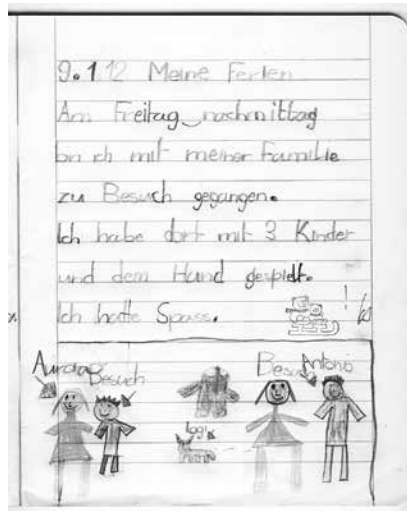 9.1.12 Meine Ferien
Am Freitag nachmittag
bin ich mit meiner Familie
zu Besuch gegangen.
Ich habe dort mit 3 Kinder
und dem Hund gespielt.
Ich hatte Spass. !
Aurora Besuch Besuch Antonio